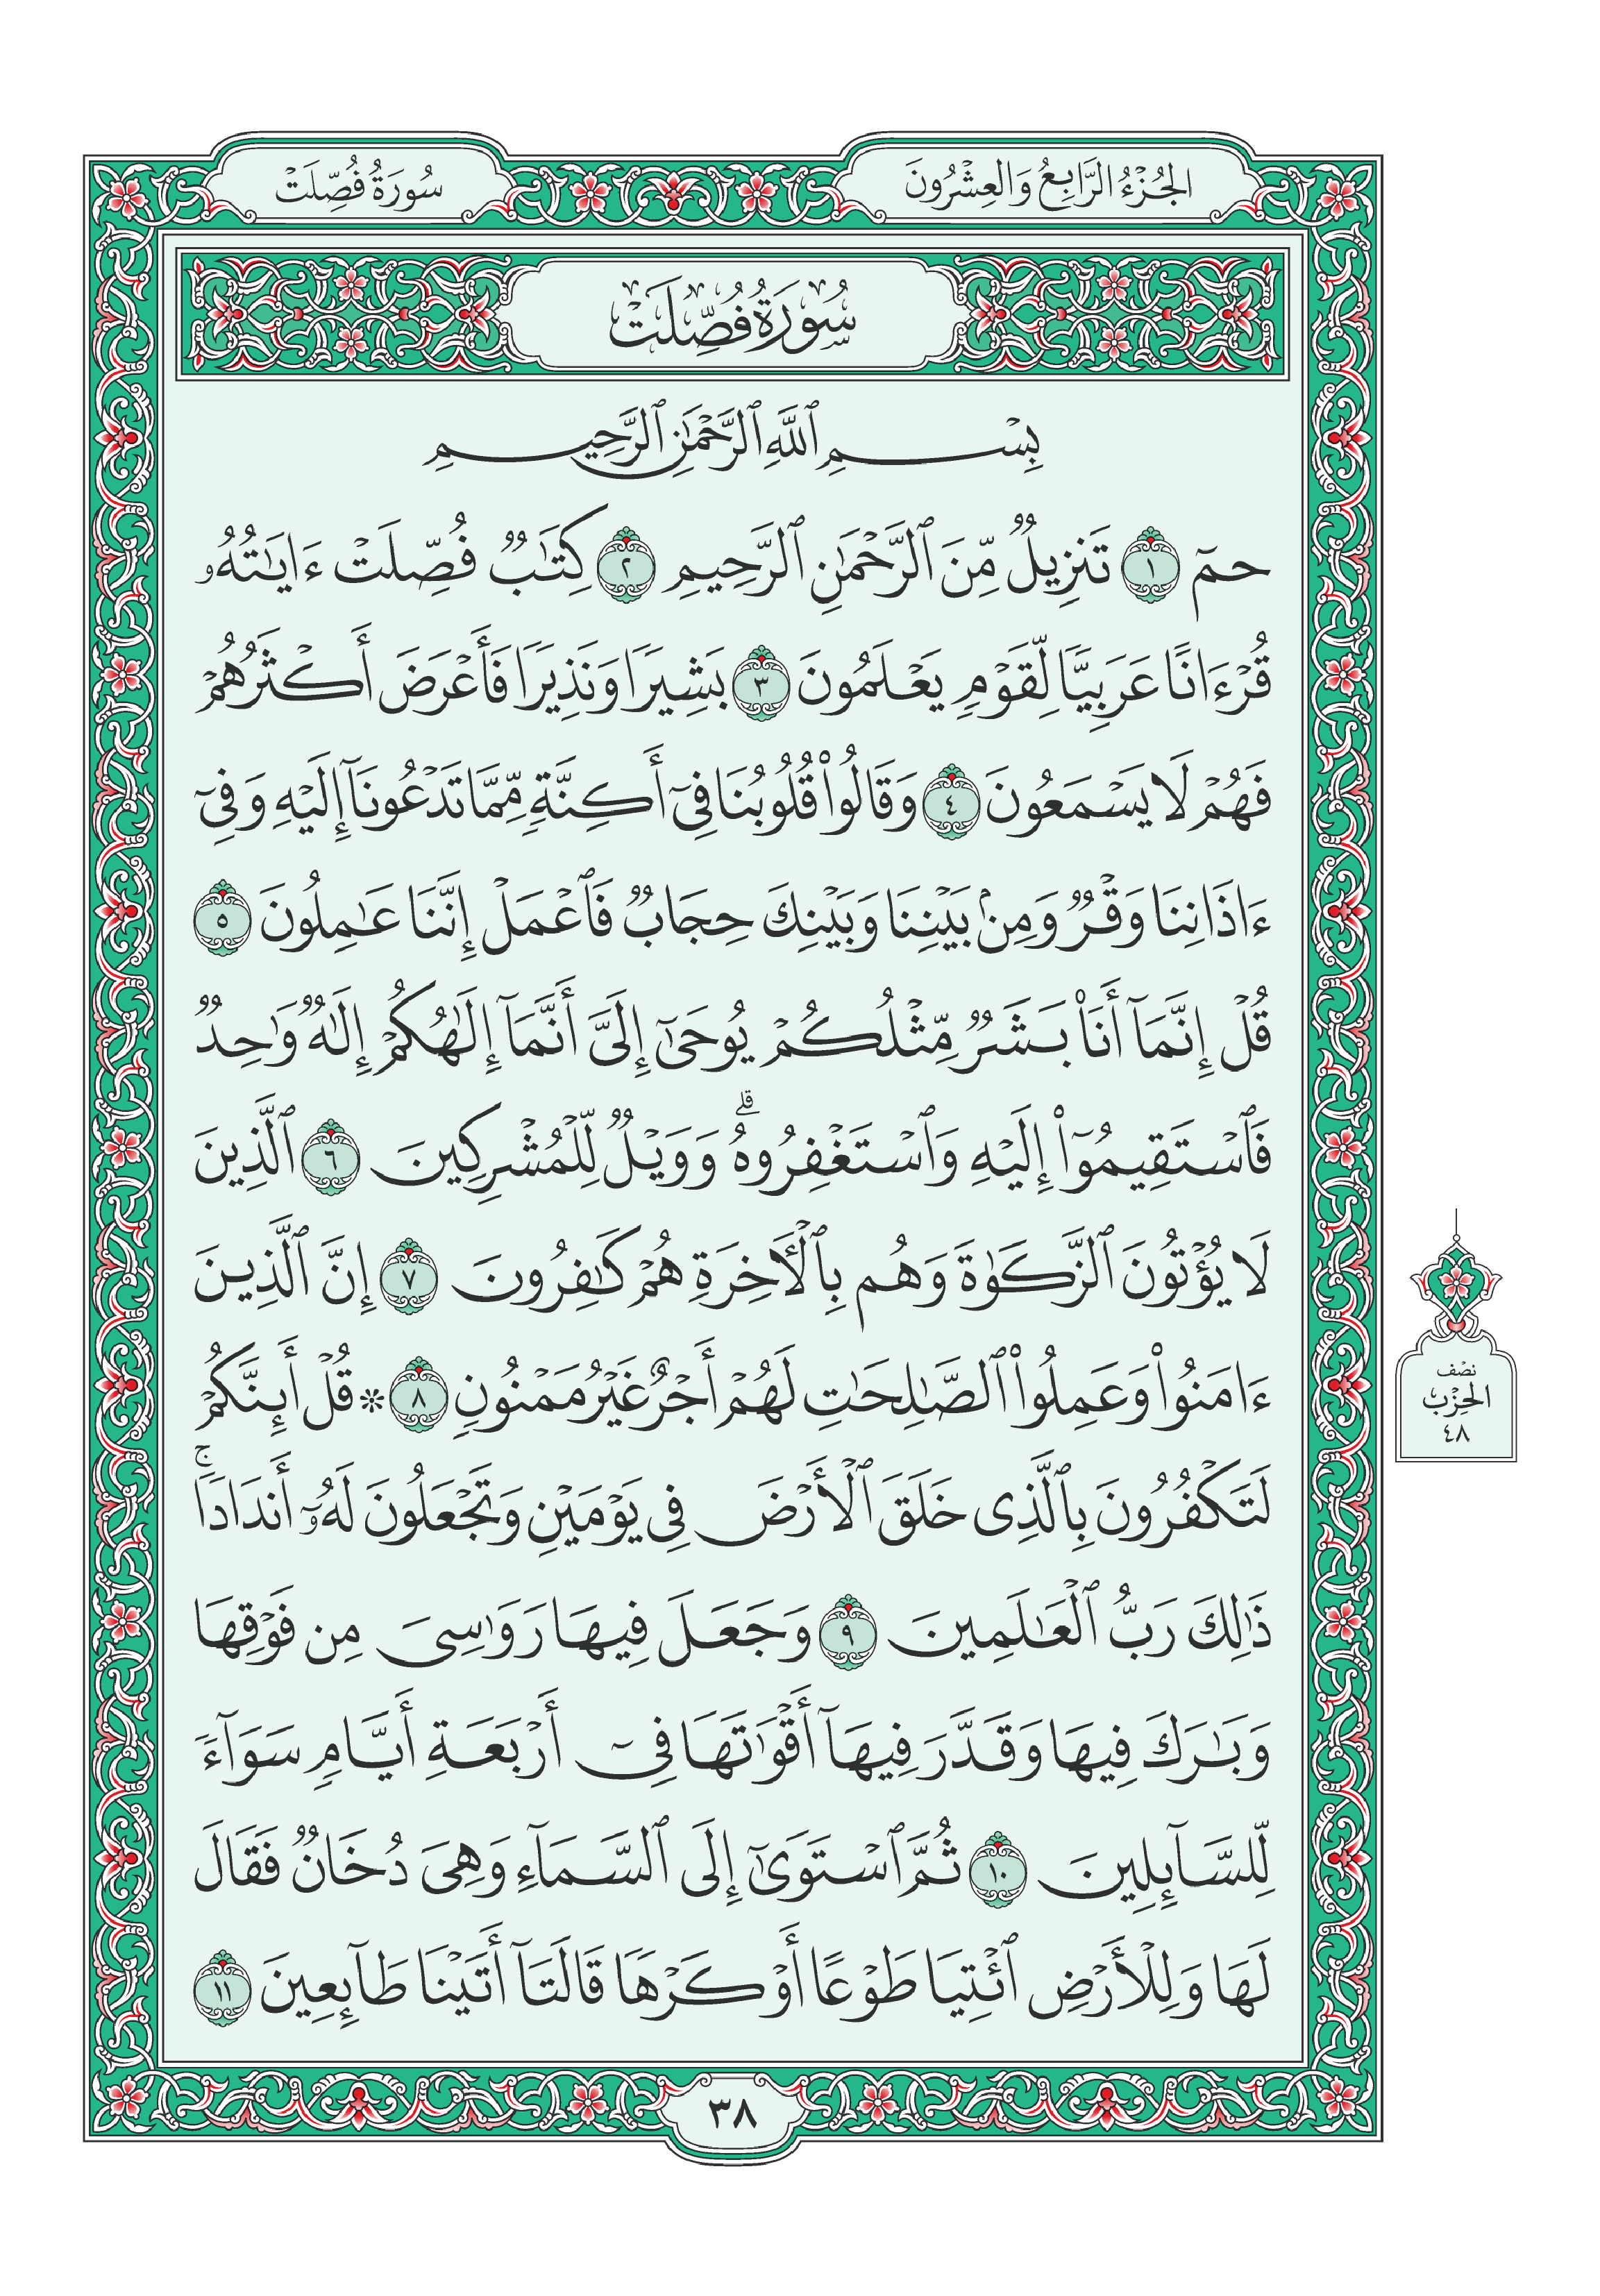 الجُزْءُ الرَّابِعُ وَالعِشْرُونَ
سُورَةُ فُصِّلَتْ
سُورَةُ فُصِّلَتْ
بِسْمِ ٱللَّهِ ٱلرَّحْمَٰنِ ٱلرَّحِيمِ
حمٓ ١ تَنزِيلٌ مِّنَ ٱلرَّحْمَٰنِ ٱلرَّحِيمِ ٢ كِتَٰبٌ فُصِّلَتْ ءَايَٰتُهُۥ
قُرْءَانًا عَرَبِيًّا لِّقَوْمٍ يَعْلَمُونَ ٣ بَشِيرًا وَنَذِيرًا فَأَعْرَضَ أَكْثَرُهُمْ
فَهُمْ لَا يَسْمَعُونَ ٤ وَقَالُوا۟ قُلُوبُنَا فِىٓ أَكِنَّةٍ مِّمَّا تَدْعُونَآ إِلَيْهِ وَفِىٓ
ءَاذَانِنَا وَقْرٌ وَمِنۢ بَيْنِنَا وَبَيْنِكَ حِجَابٌ فَٱعْمَلْ إِنَّنَا عَٰمِلُونَ ٥
قُلْ إِنَّمَآ أَنَا۠ بَشَرٌ مِّثْلُكُمْ يُوحَىٰٓ إِلَىَّ أَنَّمَآ إِلَٰهُكُمْ إِلَٰهٌ وَٰحِدٌ
فَٱسْتَقِيمُوٓا۟ إِلَيْهِ وَٱسْتَغْفِرُوهُ ۗ وَوَيْلٌ لِّلْمُشْرِكِينَ ٦ ٱلَّذِينَ
لَا يُؤْتُونَ ٱلزَّكَوٰةَ وَهُم بِٱلْـَٔاخِرَةِ هُمْ كَٰفِرُونَ ٧ إِنَّ ٱلَّذِينَ
ءَامَنُوا۟ وَعَمِلُوا۟ ٱلصَّٰلِحَٰتِ لَهُمْ أَجْرٌ غَيْرُ مَمْنُونٍ ٨ ۞ قُلْ أَئِنَّكُمْ
لَتَكْفُرُونَ بِٱلَّذِى خَلَقَ ٱلْأَرْضَ فِى يَوْمَيْنِ وَتَجْعَلُونَ لَهُۥٓ أَندَادًا ۚ
ذَٰلِكَ رَبُّ ٱلْعَٰلَمِينَ ٩ وَجَعَلَ فِيهَا رَوَٰسِىَ مِن فَوْقِهَا
وَبَٰرَكَ فِيهَا وَقَدَّرَ فِيهَآ أَقْوَٰتَهَا فِىٓ أَرْبَعَةِ أَيَّامٍ سَوَآءً
لِّلسَّآئِلِينَ ١٠ ثُمَّ ٱسْتَوَىٰٓ إِلَى ٱلسَّمَآءِ وَهِىَ دُخَانٌ فَقَالَ
لَهَا وَلِلْأَرْضِ ٱئْتِيَا طَوْعًا أَوْ كَرْهًا قَالَتَآ أَتَيْنَا طَآئِعِينَ ١١
نصْف
الحِزْب
٤٨
٣٨